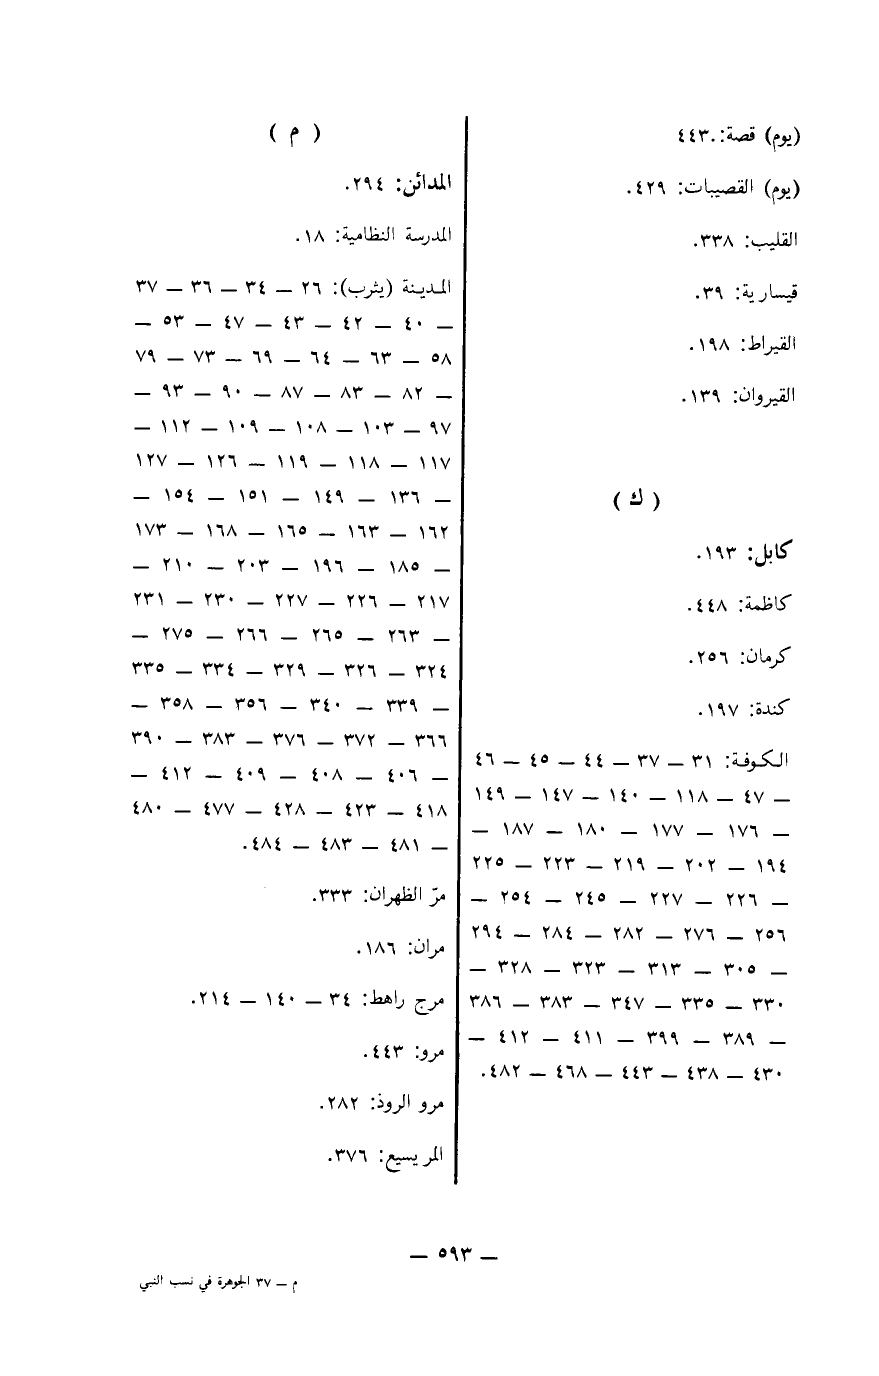 (يوم) قصة: ٤٤٣.
(يوم) القصيبات: ٤٢٩.
القليب: ٣٣٨.
قيسارية: ٣٩.
القيراط: ١٩٨.
القيروان: ١٣٩.
( ك )
كابل: ١٩٣.
كاظمة: ٤٤٨.
كرمان: ٢٥٦.
كندة: ١٩٧.
الكوفة: ٣١ – ٣٧ – ٤٤ – ٤٥ – ٤٦
– ٤٧ – ١١٨ – ١٤٠ – ١٤٧ – ١٤٩
– ١٧٦ – ١٧٧ – ١٨٠ – ١٨٧ –
١٩٤ – ٢٠٢ – ٢١٩ – ٢٢٣ – ٢٢٥
– ٢٢٦ – ٢٢٧ – ٢٤٥ – ٢٥٤ –
٢٥٦ – ٢٧٦ – ٢٨٢ – ٢٨٤ – ٢٩٤
– ٣٠٥ – ٣١٣ – ٣٢٣ – ٣٢٨ –
٣٣٠ – ٣٣٥ – ٣٤٧ – ٣٨٣ – ٣٨٦
– ٣٨٩ – ٣٩٩ – ٤١١ – ٤١٢ –
٤٣٠ – ٤٣٨ – ٤٤٣ – ٤٦٨ – ٤٨٢.
( م )
المدائن: ٢٩٤.
المدرسة النظامية: ١٨.
المدينة (يثرب): ٢٦ – ٣٤ – ٣٦ – ٣٧
– ٤٠ – ٤٢ – ٤٣ – ٤٧ – ٥٣ –
٥٨ – ٦٣ – ٦٤ – ٦٩ – ٧٣ – ٧٩
– ٨٢ – ٨٣ – ٨٧ – ٩٠ – ٩٣ –
٩٧ – ١٠٣ – ١٠٨ – ١٠٩ – ١١٢ –
١١٧ – ١١٨ – ١١٩ – ١٢٦ – ١٢٧
– ١٣٦ – ١٤٩ – ١٥١ – ١٥٤ –
١٦٢ – ١٦٣ – ١٦٥ – ١٦٨ – ١٧٣
– ١٨٥ – ١٩٦ – ٢٠٣ – ٢١٠ –
٢١٧ – ٢٢٦ – ٢٢٧ – ٢٣٠ – ٢٣١
– ٢٦٣ – ٢٦٥ – ٢٦٦ – ٢٧٥ –
٣٢٤ – ٣٢٦ – ٣٢٩ – ٣٣٤ – ٣٣٥
– ٣٣٩ – ٣٤٠ – ٣٥٦ – ٣٥٨ –
٣٦٦ – ٣٧٢ – ٣٧٦ – ٣٨٣ – ٣٩٠
– ٤٠٦ – ٤٠٨ – ٤٠٩ – ٤١٢ –
٤١٨ – ٤٢٣ – ٤٢٨ – ٤٧٧ – ٤٨٠
– ٤٨١ – ٤٨٣ – ٤٨٤.
مرّ الظهران: ٣٣٣.
مران: ١٨٦.
مرج راهط: ٣٤ – ١٤٠ – ٢١٤.
مرو: ٤٤٣.
مرو الروذ: ٢٨٢.
المريسيع: ٣٧٦.
– ٥٩٣ –
م – ٣٧ الجوهرة في نسب النبي